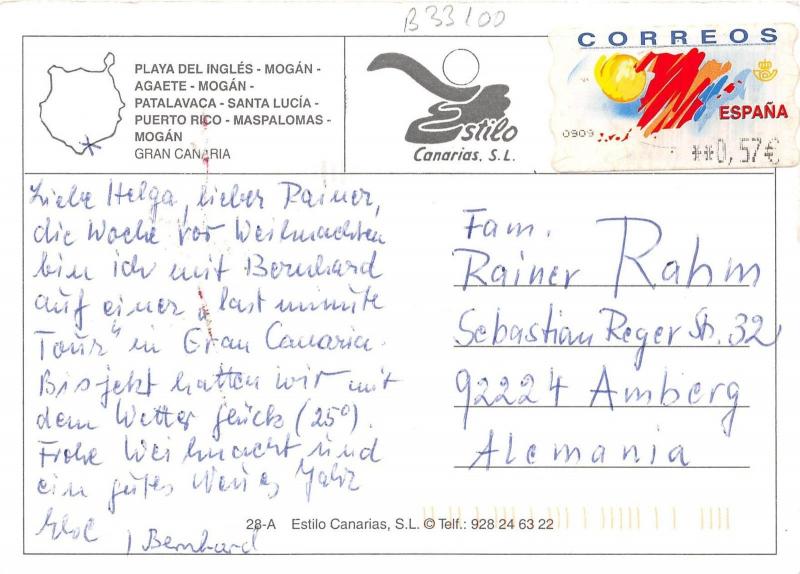 B33100
CORREOS
ESPAÑA
0909
**0,57€
PLAYA DEL INGLÉS - MOGÁN -
AGAETE - MOGÁN -
PATALAVACA - SANTA LUCÍA -
PUERTO RICO - MASPALOMAS -
MOGÁN
GRAN CANARIA
Estilo
Canarias, S.L.
Liebe Helga, lieber Rainer,
die Woche vor Weihnachten
bin ich mit Bernhard
auf einer „last minute
Tour" in Gran Canaria.
Bisjetzt hatten wir mit
dem Wetter Glück (25°).
Frohe Weihnacht und
ein gutes Neues Jahr
Bernhard
Fam.
Rainer Rahm
Sebastian Reger Str. 32
92224 Amberg
Alemania
28-A Estilo Canarias, S.L. © Telf.: 928 24 63 22